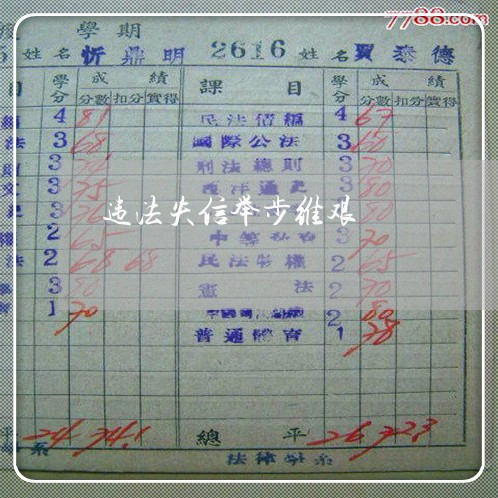 7788.com
學期
姓名 忻鼎明 2616 姓名 賈泰德
目 學分 成績 課目 學分 成績
分數 扣分 實得 分數 扣分 實得
4 81 民法債編 4 67
法 3 68 國際公法 3 60
3 刑法總則 3 70
3 75 西洋通史 3 80
3
违法失信举步维艰
2 65 3 70
法 2 68 68 民法物權 2 65
3 80 憲法 2 70
1 70 2 80
普通體育 1 78
平 24 74.1 總平 26 72.3
系 法律學系